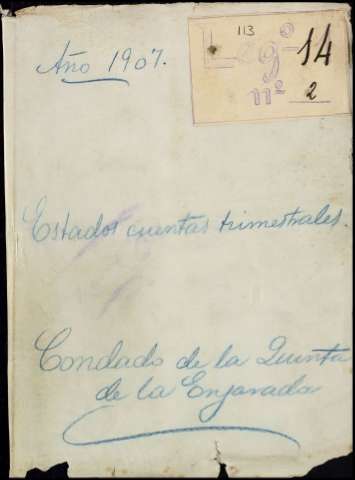 113
Leg.º 14
nº 2
Año 1907.
Estados cuentas trimestrales.
Condado de la Quinta
de la Enjarada